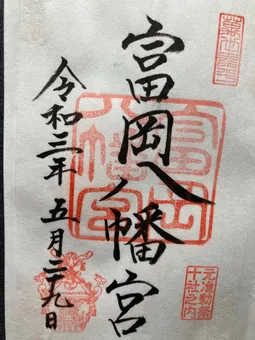 富岡八幡宮
令和三年五月二十九日
富岡
八幡宮
元准勅祭
十社之内